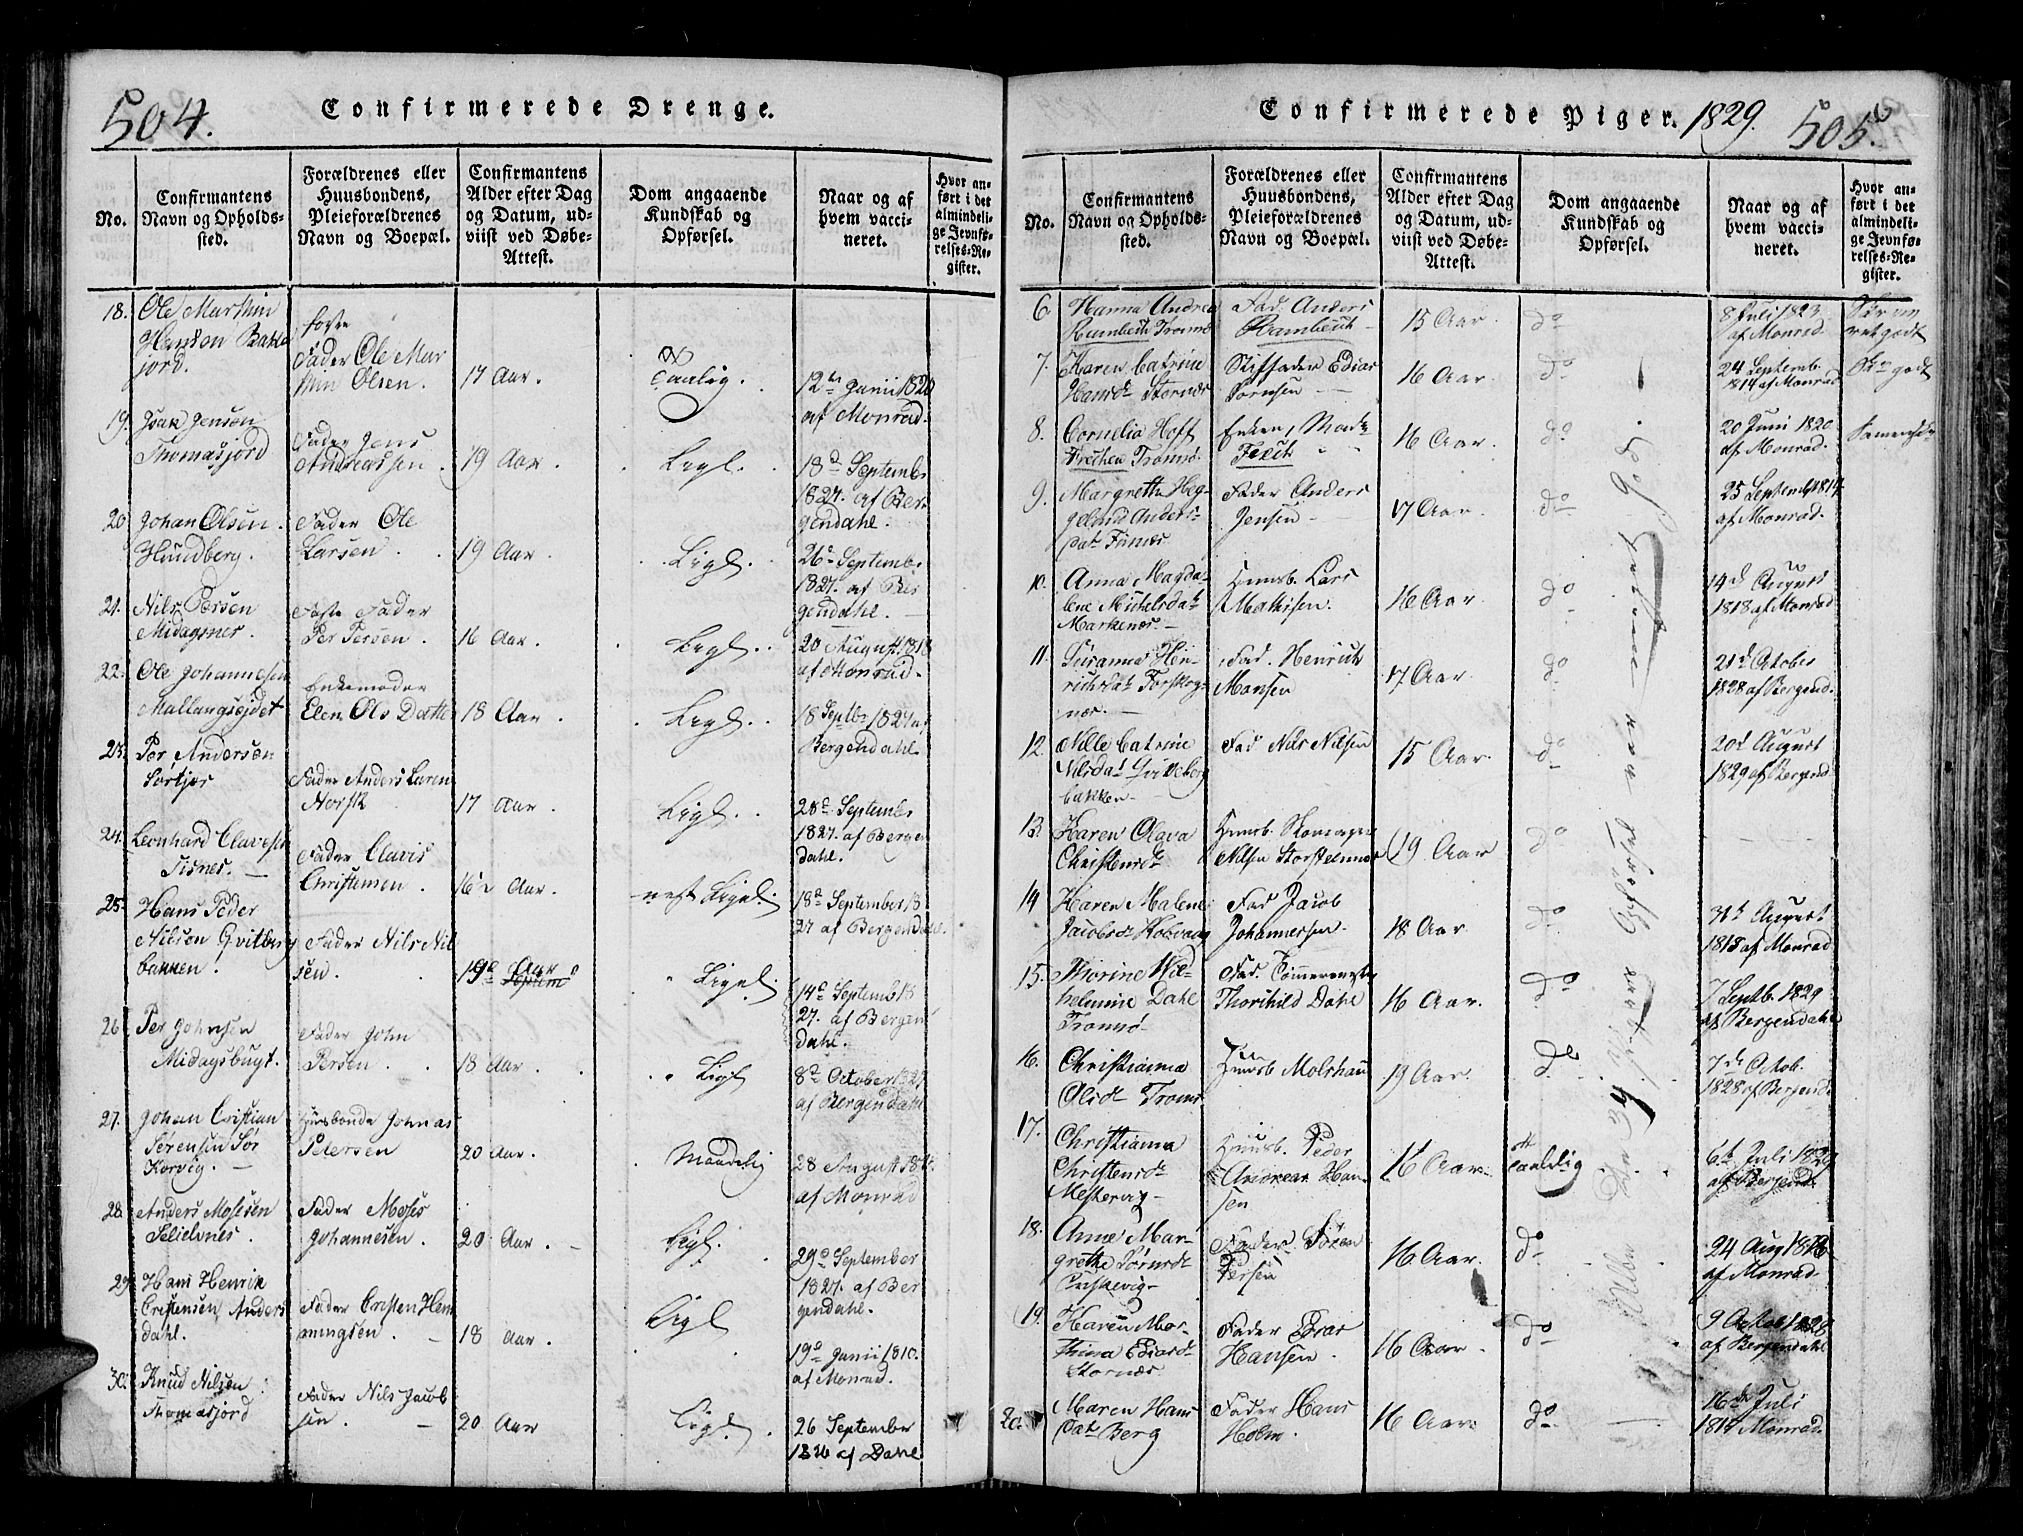 504.
Confirmerede Drenge.
No.
Confirmantens
Navn og Opholds-
sted.
Forældrenes eller
Huusbondens,
Pleieforældrenes
Navn og Boepæl.
Confirmantens
Alder efter Dag
og Datum, ud-
viist ved Døbe-
Attest.
Dom angaaende
Kundskab og
Opførsel.
Naar og af
hvem vacci-
neret.
Hvor an-
ført i det
almindeli-
ge Jevnfø-
relses-Re-
gister.
18.
Ole
Hanson
jord.
foste
Fader Ole Mar
Olsen.
17 Aar.
Taalig.
12te Junii 1820
af Monrad.
19.
Isak Jensen
Thomasjord
Fader Jens
Andreassen.
19 Aar.
Ligl.
18d Septembr
1827. af Ber-
gendahl.
20
Johan Olsen.
Hundberg.
Fader Ole
Larsen.
19 Aar.
Ligl.
26d Septembr
1827. af Ber
gendahl.
21.
Nils Persen
Midagsner.
Foste Fader
Per Persen.
16 Aar.
Ligl.
20 August 1818
af Monrad.
22.
Ole Johannesen
Mallangsejdet
Enkemoder
Elen Ols Datter
18 Aar.
Ligl.
18 Septbr 1827 af
Bergendahl
23.
Per Andersen
Fader Anders Laren
Norsk
17 Aar.
Ligl.
28d Septembr
1827. af Bergen
dahl.
24.
Leonhard Clavesen
Tisnes.
Fader Clavis
Christensen.
16½ Aar.
nest Ligel.
18d September 18
27 af Bergendahl.
25.
Hans Peder
Nilsen Qvitberg
bakken.
Fader Nils Nil
sen.
19 Aar
Ligel.
14d Septembr 18
27. af Bergen
dahl.
26.
Per Johnsen
Midagsbugt.
Fader John
Persen.
18 Aar.
Ligl
8de October 1827
af Bergendahl
27.
Johan Cristian
Sørensen Sør
Korvig.
Huusbonde Johnas
Petersen
20 Aar.
Maadelig
28 August
af Monrad
28.
Anders Mosesen
Selielvnes.
Fader Moses
Johannesen.
20 Aar.
Ligl.
29d September
1827. af Ber
gendahl.
29.
Hans Henrik
Cristensen Anders
dahl.
Fader Cristen Hem
mingsen.
18 Aar.
Ligl
19d Junii 1810.
af Monrad.
30.
Knud Nilsen
Thomasjord
Fader Nils Jacob
sen.
20 Aar
Ligl.
26 September
1826 af Dahl
Confirmerede Piger. 1829.
505.
No.
Confirmantens
Navn og Opholds-
sted.
Forældrenes eller
Huusbondens,
Pleieforældrenes
Navn og Boepæl.
Confirmantens
Alder efter Dag
og Datum, ud-
viist ved Døbe-
Attest.
Dom angaaende
Kundskab og
Opførsel.
Naar og af
hvem vacci-
neret.
Hvor an-
ført i det
almindeli-
ge Jevnfø-
relses-Re-
gister.
6.
Hanna Andrea
Hambech Tromsø
Fad. Anders
Hambech
15 Aar.
do
8 Juli 1823
af Monrad.
7.
Karen Catrine
Hansdt Stornæs
Stiffader Edias
Sørensen
16 Aar.
do
24 Septemb.
1814 af Monrad
8.
Cornelia Hoft
Tromsø.
Enken Mad.
16 Aar.
do
20 Juni 1820
af Monrad.
9.
Margrethe Heg-
gelund Anders-
dat Finnes
Fader Anders
Jensen
17 Aar.
do
25 September 1814
af Monrad.
10.
Anna Magda-
lene Mickelsdat
Markenes.
Huusb. Lars
Mathisen.
16 Aar.
do
14d August
1818 af Monrad
11.
Susanna Hen-
richsdat
nær.
Fad. Henrich
Monsen
17 Aar.
do
21d Octobr
1828 af Bergend.
12.
Elle Catrine
Nilsdat Qvitberg
bakken
Fad Nils Nilsen
15 Aar.
do
20d August
1829 af Bergend.
13.
Karen Olava
Christensdt
Huusb. Skomager
Nilsen Storsteennes
19 Aar
do
14
Karen Malene
Jacobsdt Kobvaag
Fad Jacob
Johannessen.
18 Aar.
do
31t August
1818 af Monrad
15.
Thorine Wil-
helmine Dahl
Tromsø
Fad. Tømmermester
Thorchild Dahl
16 Aar.
do
7 Septb. 1829
af Bergendahl
16.
Christianna
Olsdt Tromsø
Huusb Molshau
19 Aar.
do
7de Octob.
1828 af Bergend.
17.
Christianna
Christensdt
Mestervig
Huusb. Peder
Andreas Han-
sen
16 Aar.
Taaldig
6te Juli 1829
af Bergend.
18.
Anne Mar-
grethe Sørensdt
Fader Søren
Persen
16 Aar.
do
24 Aug 1818
af Monrad.
19.
Karen Mar-
thina Ediasdt
Stornæs
Fader Edias
Hansen
16 Aar.
do
9 October 1828
af Bergendahl
20.
Maren Hans
dat Berg
Fader Hans
Holm.
16 Aar.
do
16de Juli
1817 Monrad.